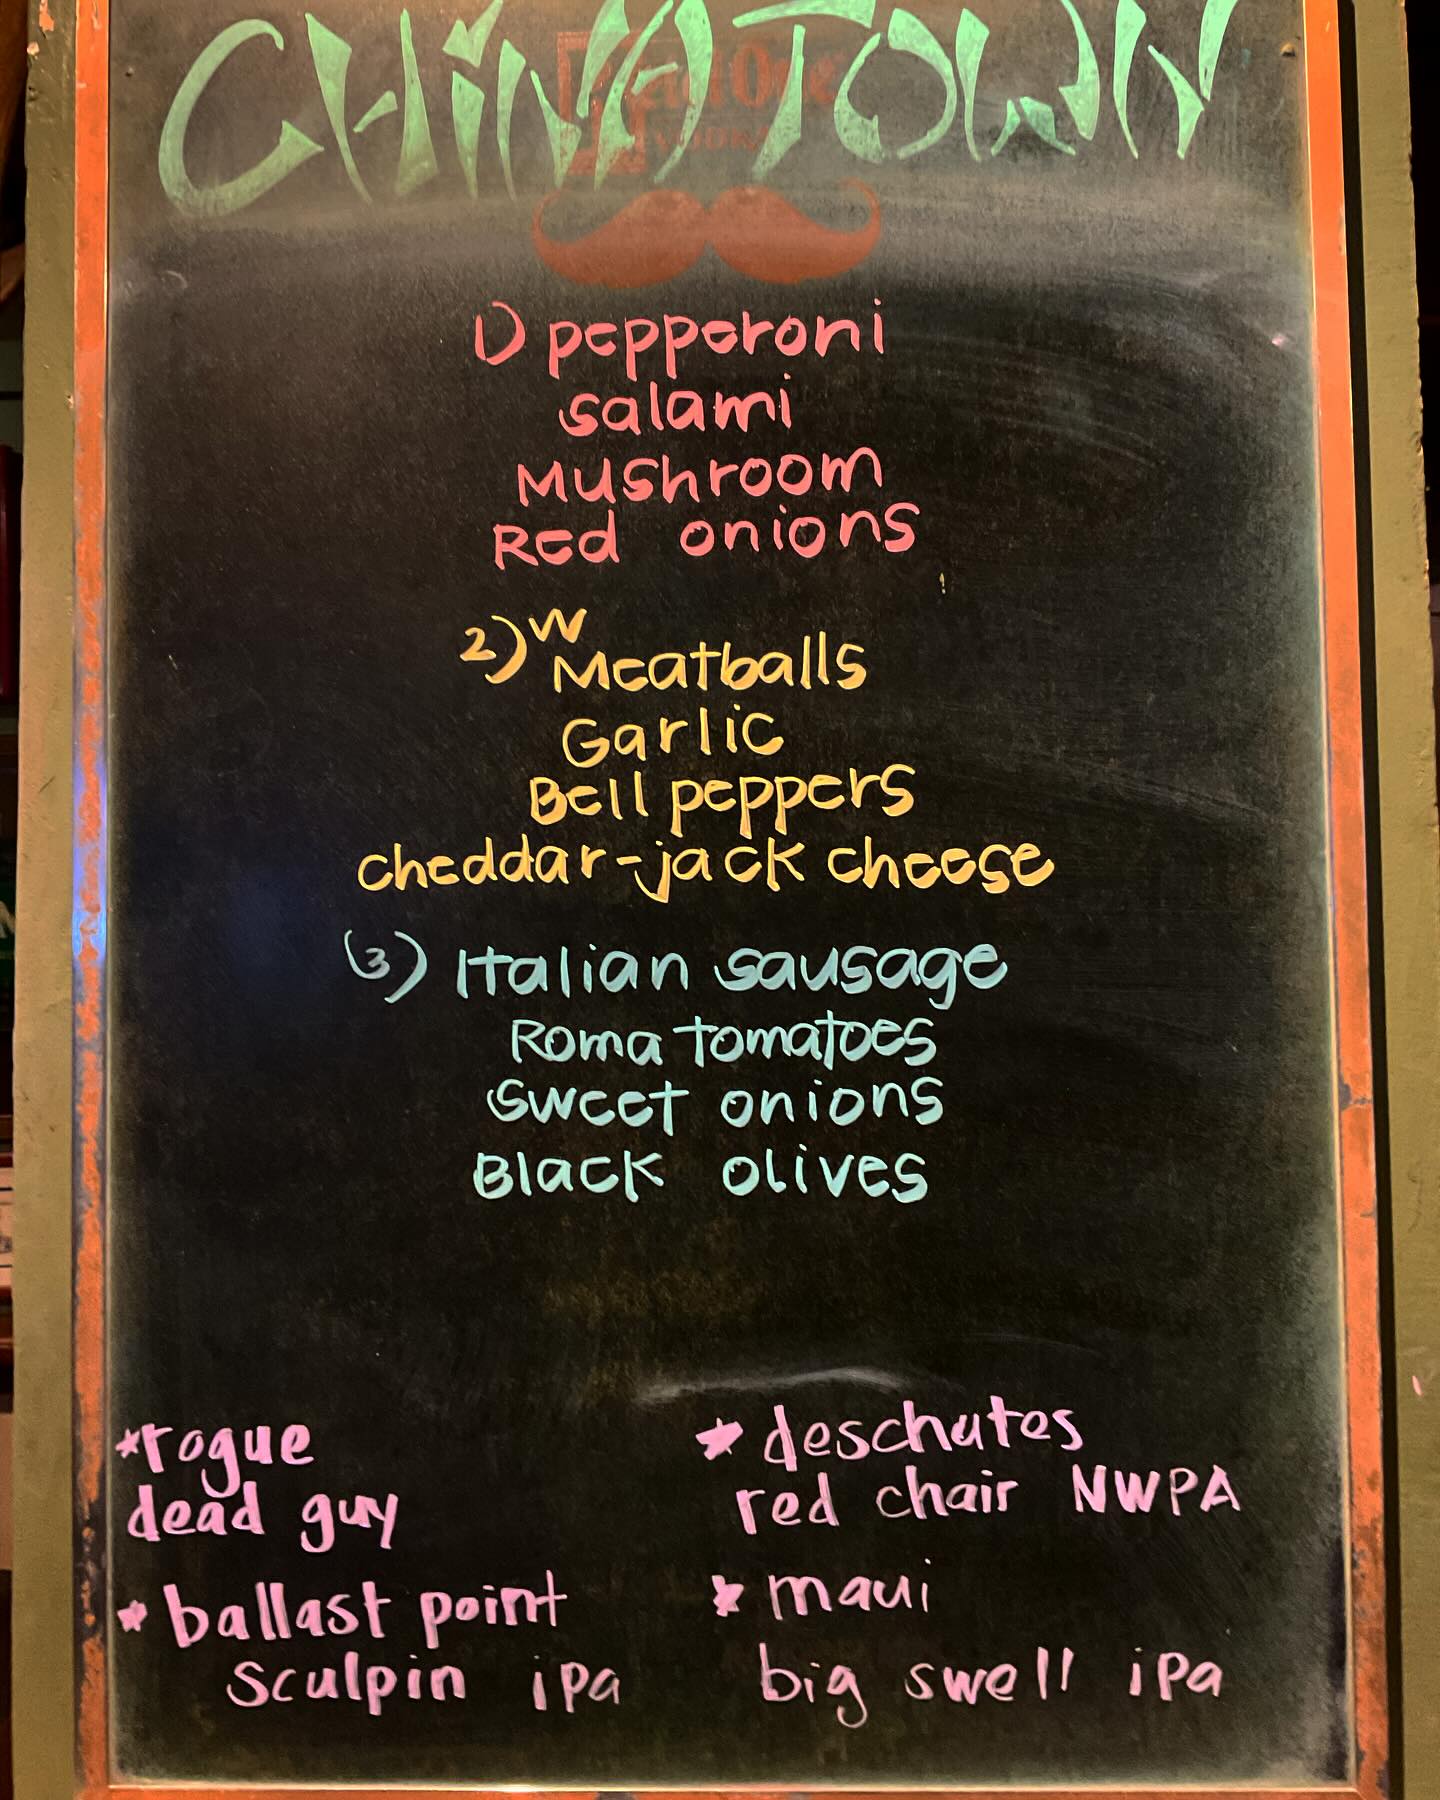 CHiNATOWN
Ketel One
VODKA
1) pepperoni
salami
Mushroom
Red onions
2) W
Meatballs
Garlic
Bell peppers
cheddar-jack cheese
(3) Italian sausage
Roma tomatoes
sweet onions
Black olives
*rogue
dead guy
* ballast point
sculpin ipa
* deschutes
red chair NWPA
* maui
big swell ipa